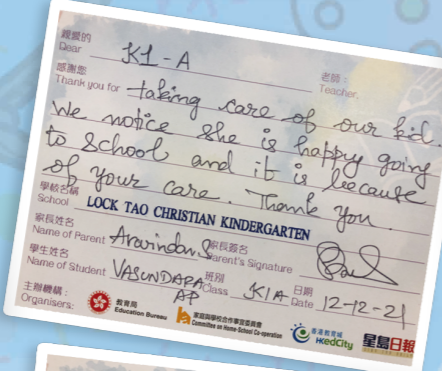 親愛的
Dear K1-A 老師：
Teacher,
感謝您
Thank you for taking care of our kid.
We notice she is happy going
to school and it is because
of your care. Thank you.
學校名稱
School LOCK TAO CHRISTIAN KINDERGARTEN
家長姓名 家長簽名
Name of Parent Aravindan.S Parent's Signature
學生姓名 班別 日期
Name of Student VASUNDARA AP Class K1A Date 12-12-21
主辦機構：
Organisers: 教育局 Education Bureau 家庭與學校合作事宜委員會 Committee on Home-School Co-operation 香港教育城 HKedCity 星島日報